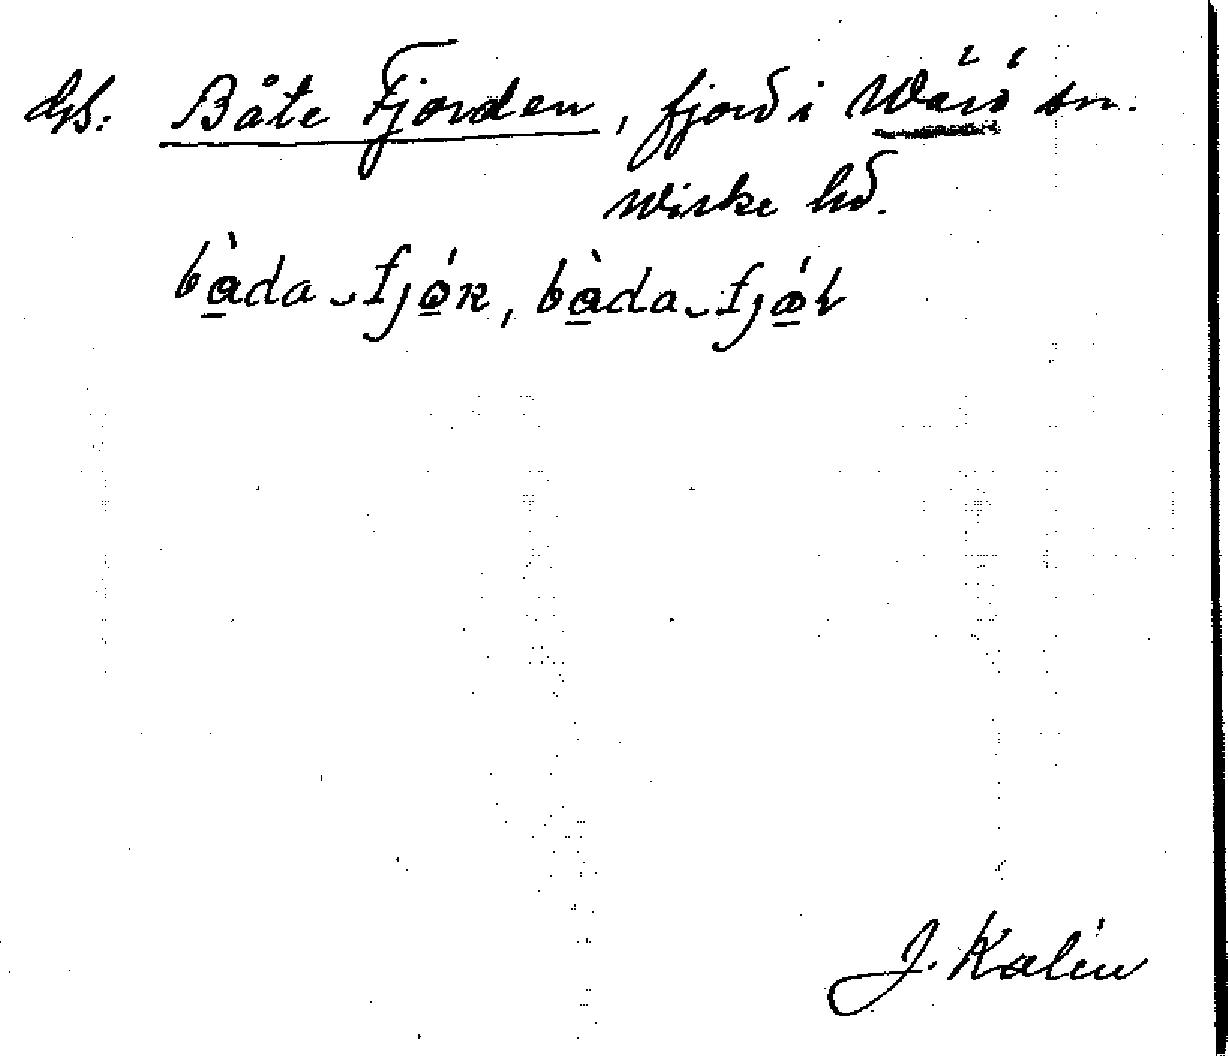 GS: Båte Fjorden, fjord i Wärö sn.
Wiske hd.
bàda-fjó̱n, bàda-fjó̱ɫ
J. Kalén